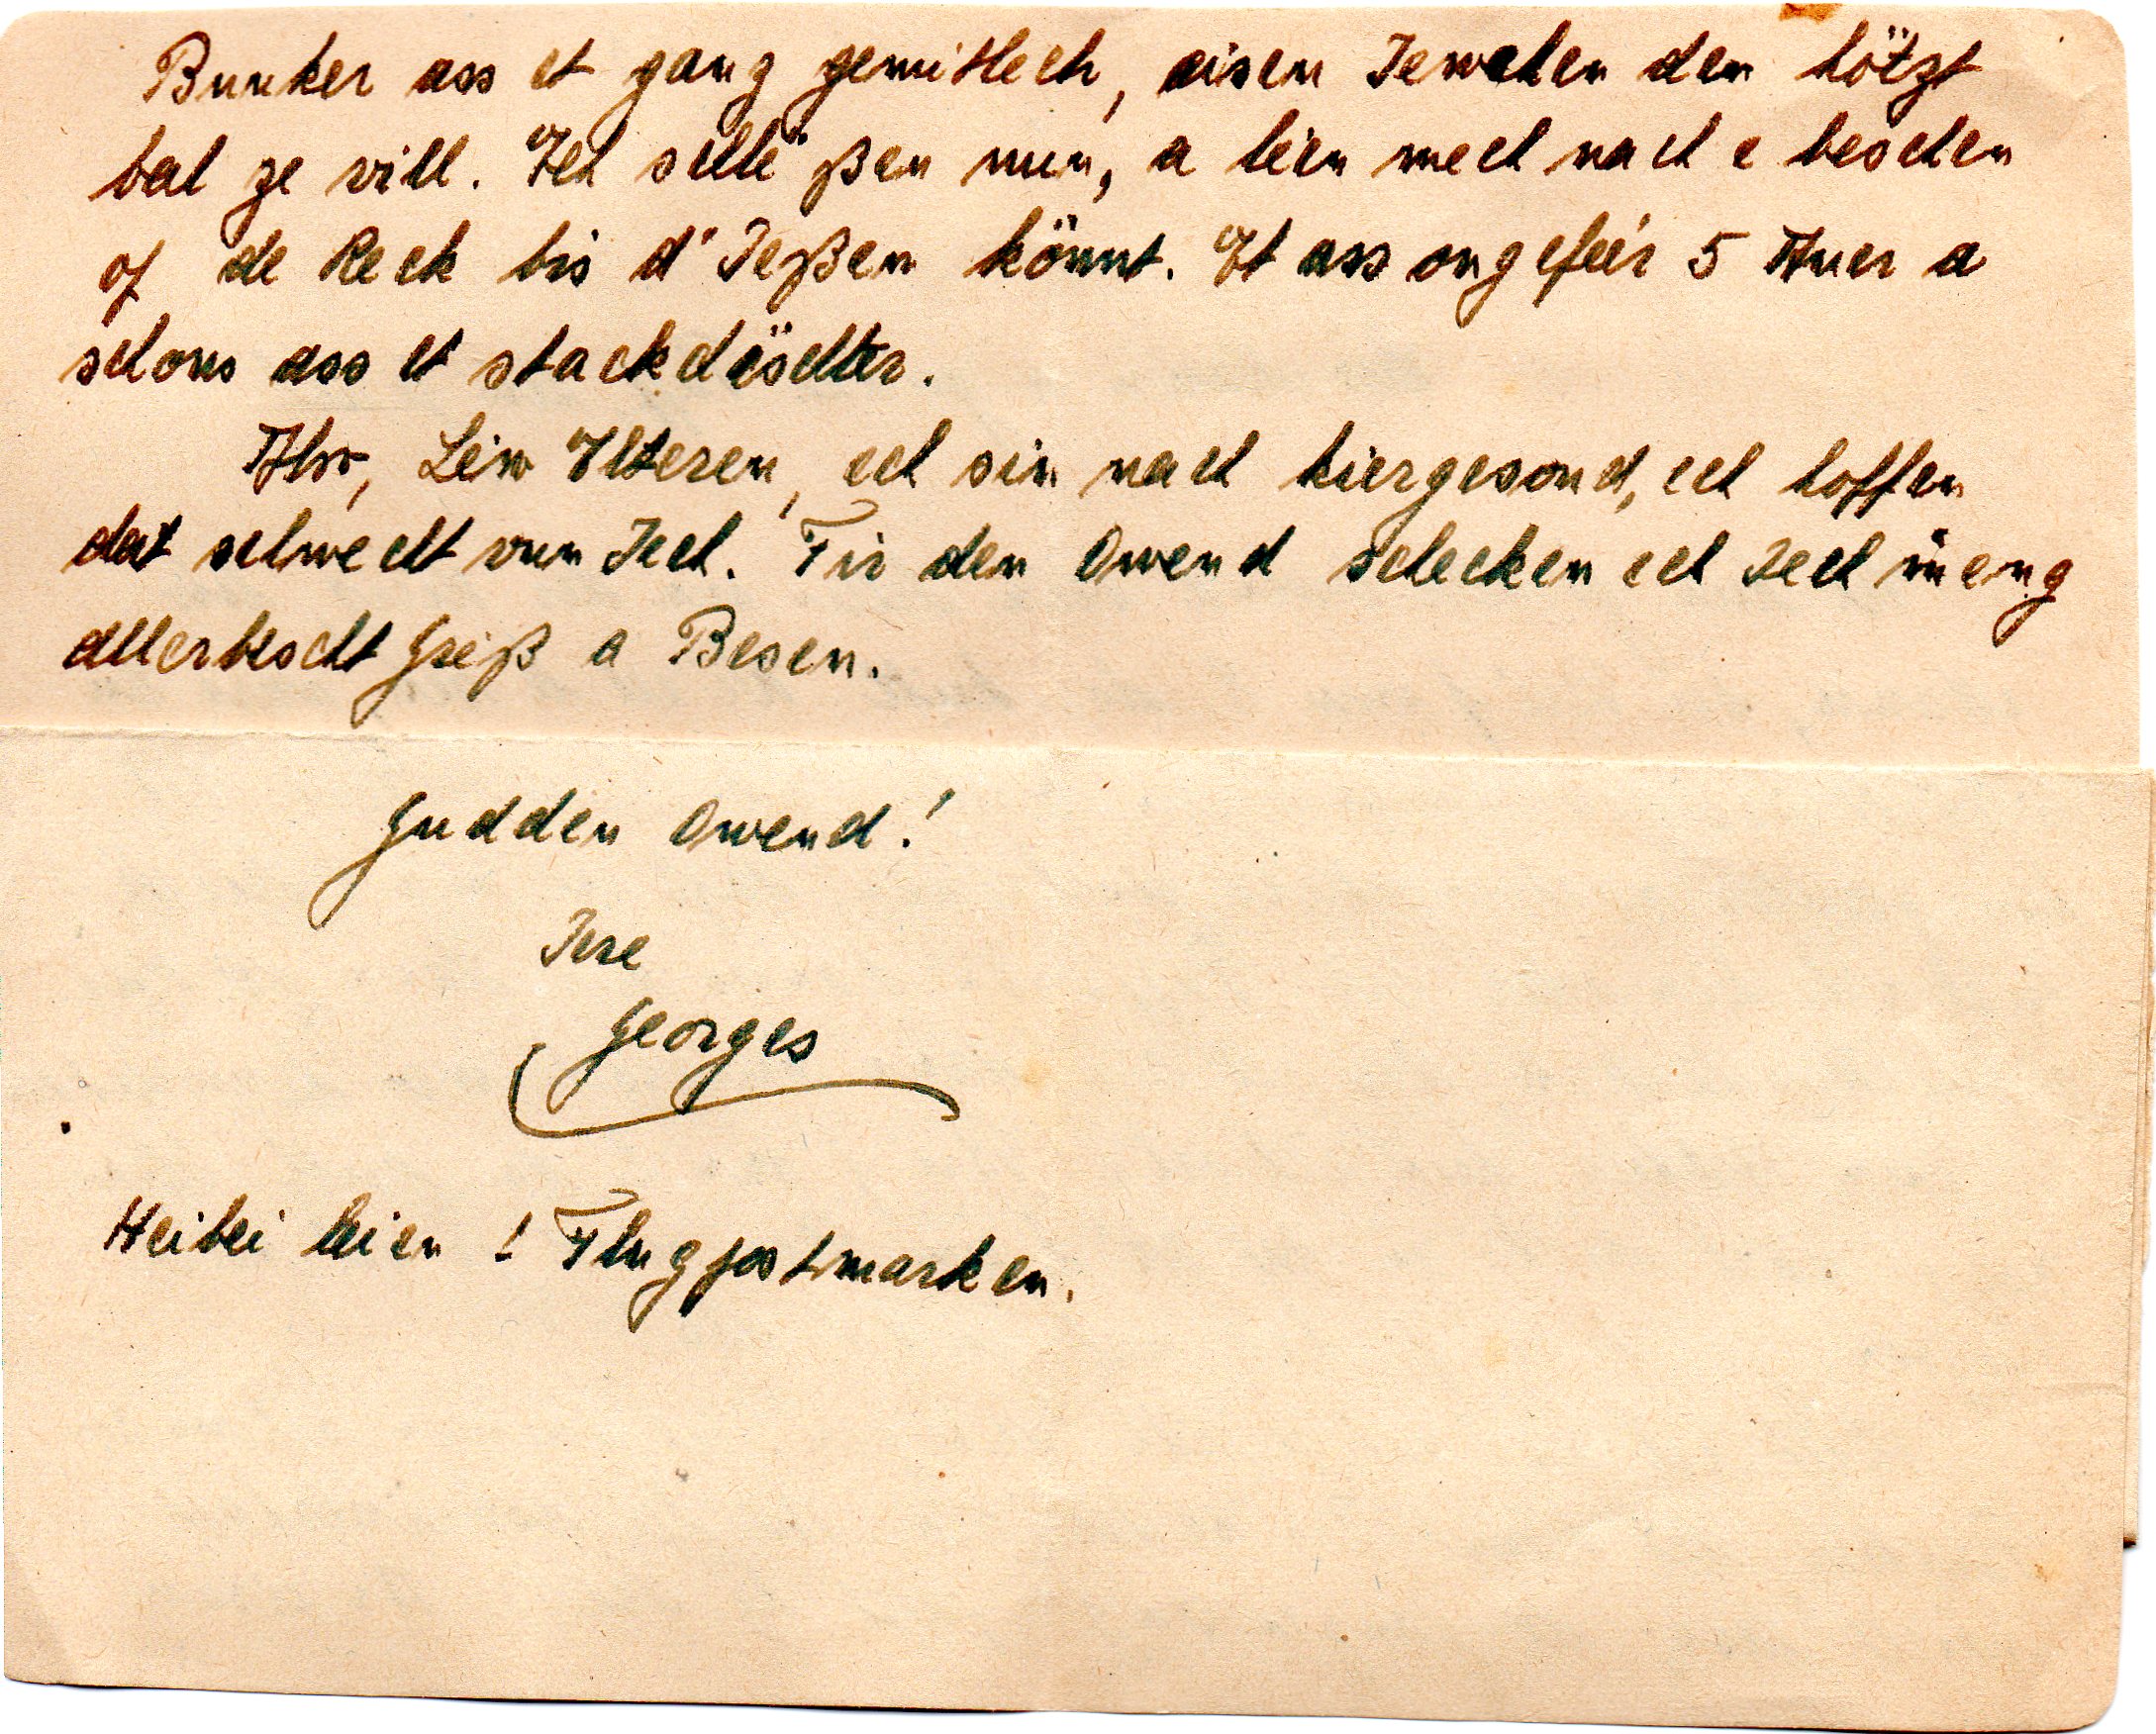 Bunker ass et ganz gemitlech, eisen Iewchen den hötzt
bal ze vill. Ech schléßen nun, a léen mech nach e beschen
of de Reck bis d'Ießen könnt. Et ass ongeféer 5 Auer a
schons ass et stackdëschter.
Also, Léiw Elteren, ech sin nach kiergesond, ech hoffen
dat selwecht vun Iech. Fir den Owend schecken ech Iech meng
allerbescht Gréiß a Besen.
Gudden Owend!
Iere
Georges
Heibei leien ! Flugpostmarken.